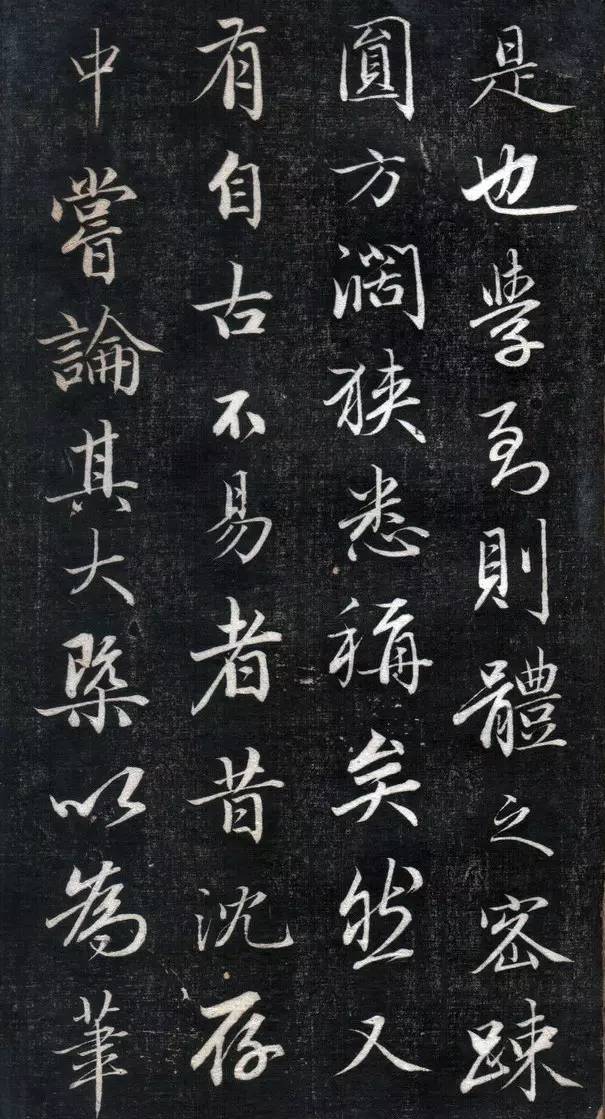 是也學到則體之密踈
圓方濶狹悉稱矣然又
有自古不易者昔沈存
中嘗論其大槩以為筆